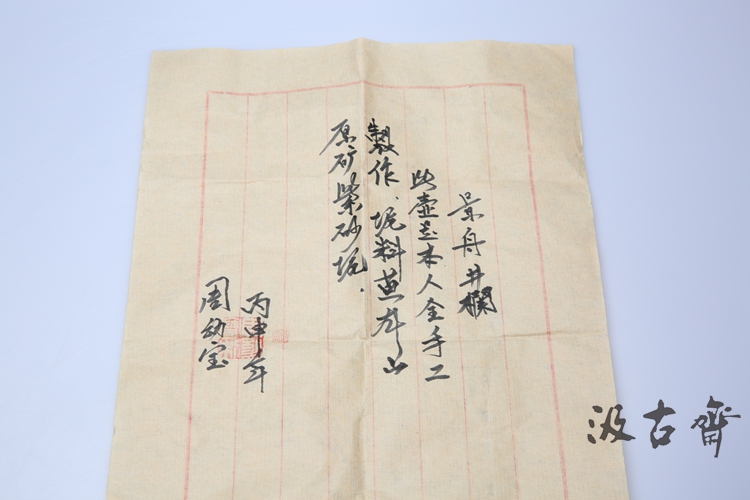 景舟井欄
此壺是本人全手工
製作、坭料黄龙山
原矿紫砂坭.
丙申年
周幼宝
汲古齋